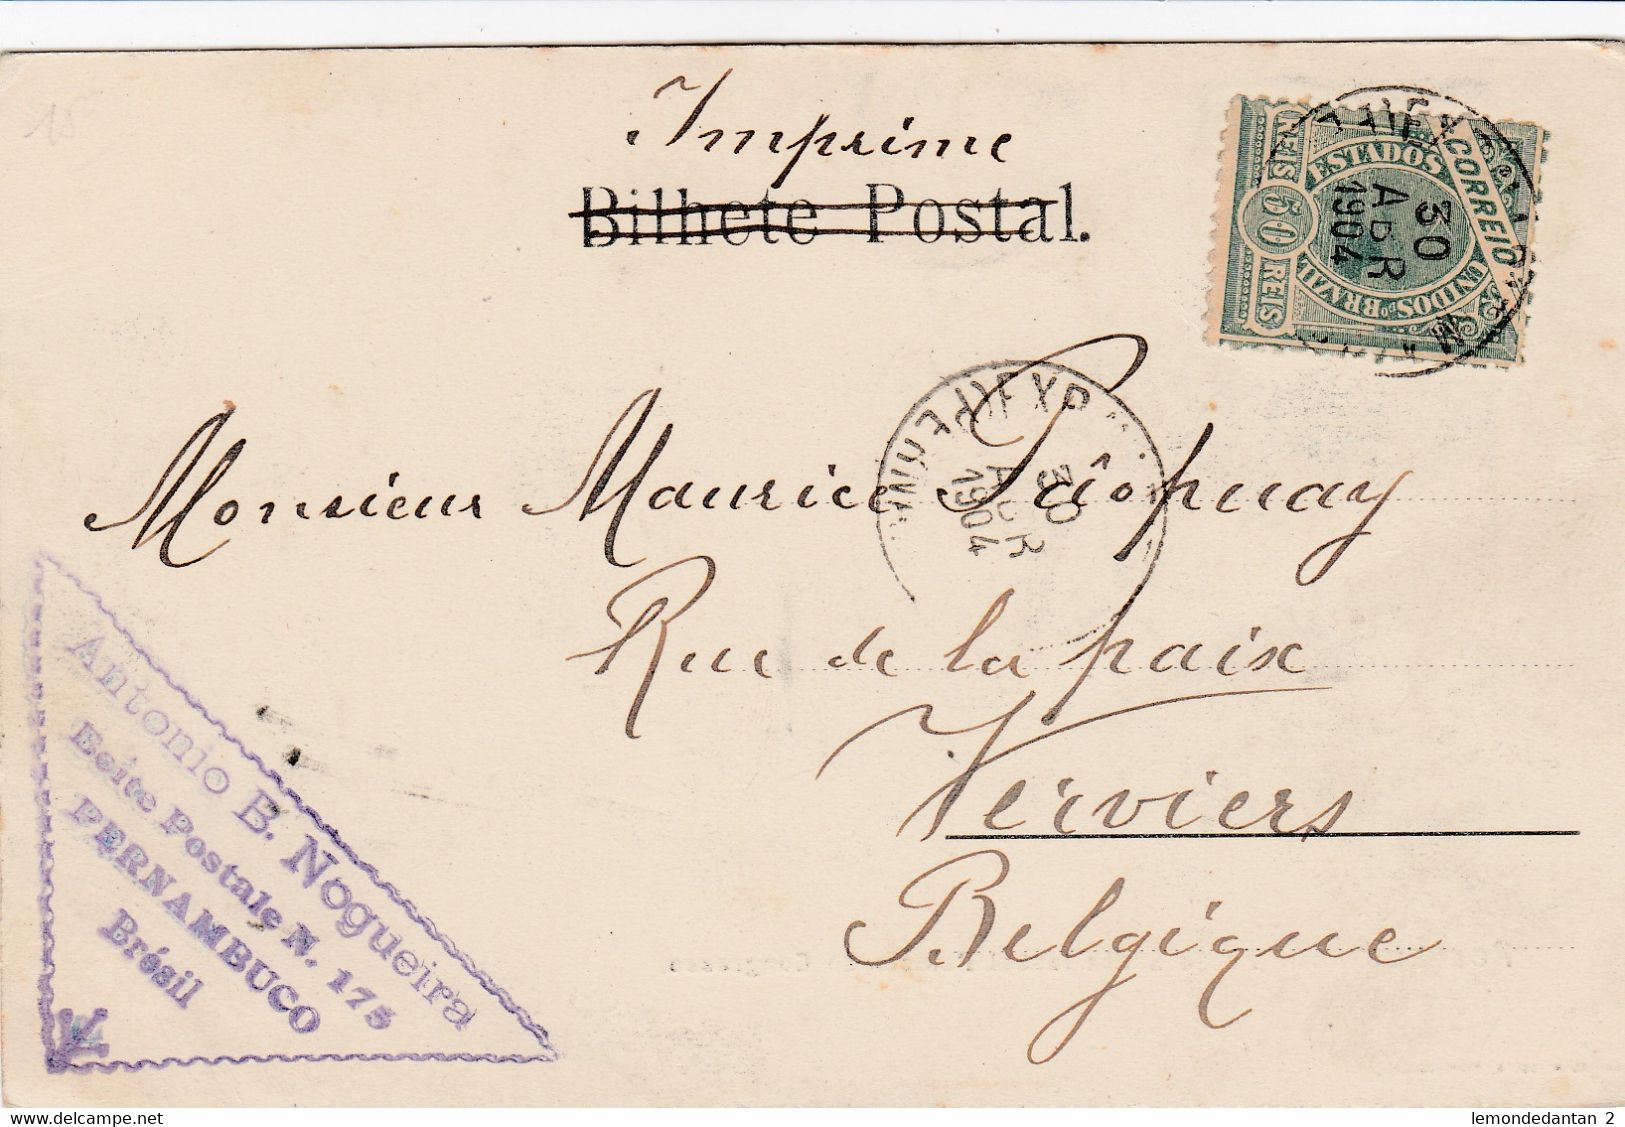 15
Imprime
Bilhete Postal.
CORREIO
ESTADOS UNIDOS DO BRAZIL
REIS 50 REIS
30
ABR
1904
30
ABR
1904
Monsieur Maurice
Rue de la paix
Verviers
Belgique
Antonio B. Nogueira
Boite Postale N. 175
PERNAMBUCO
Brésil
Congresso
delcampe.net
lemondedantan 2